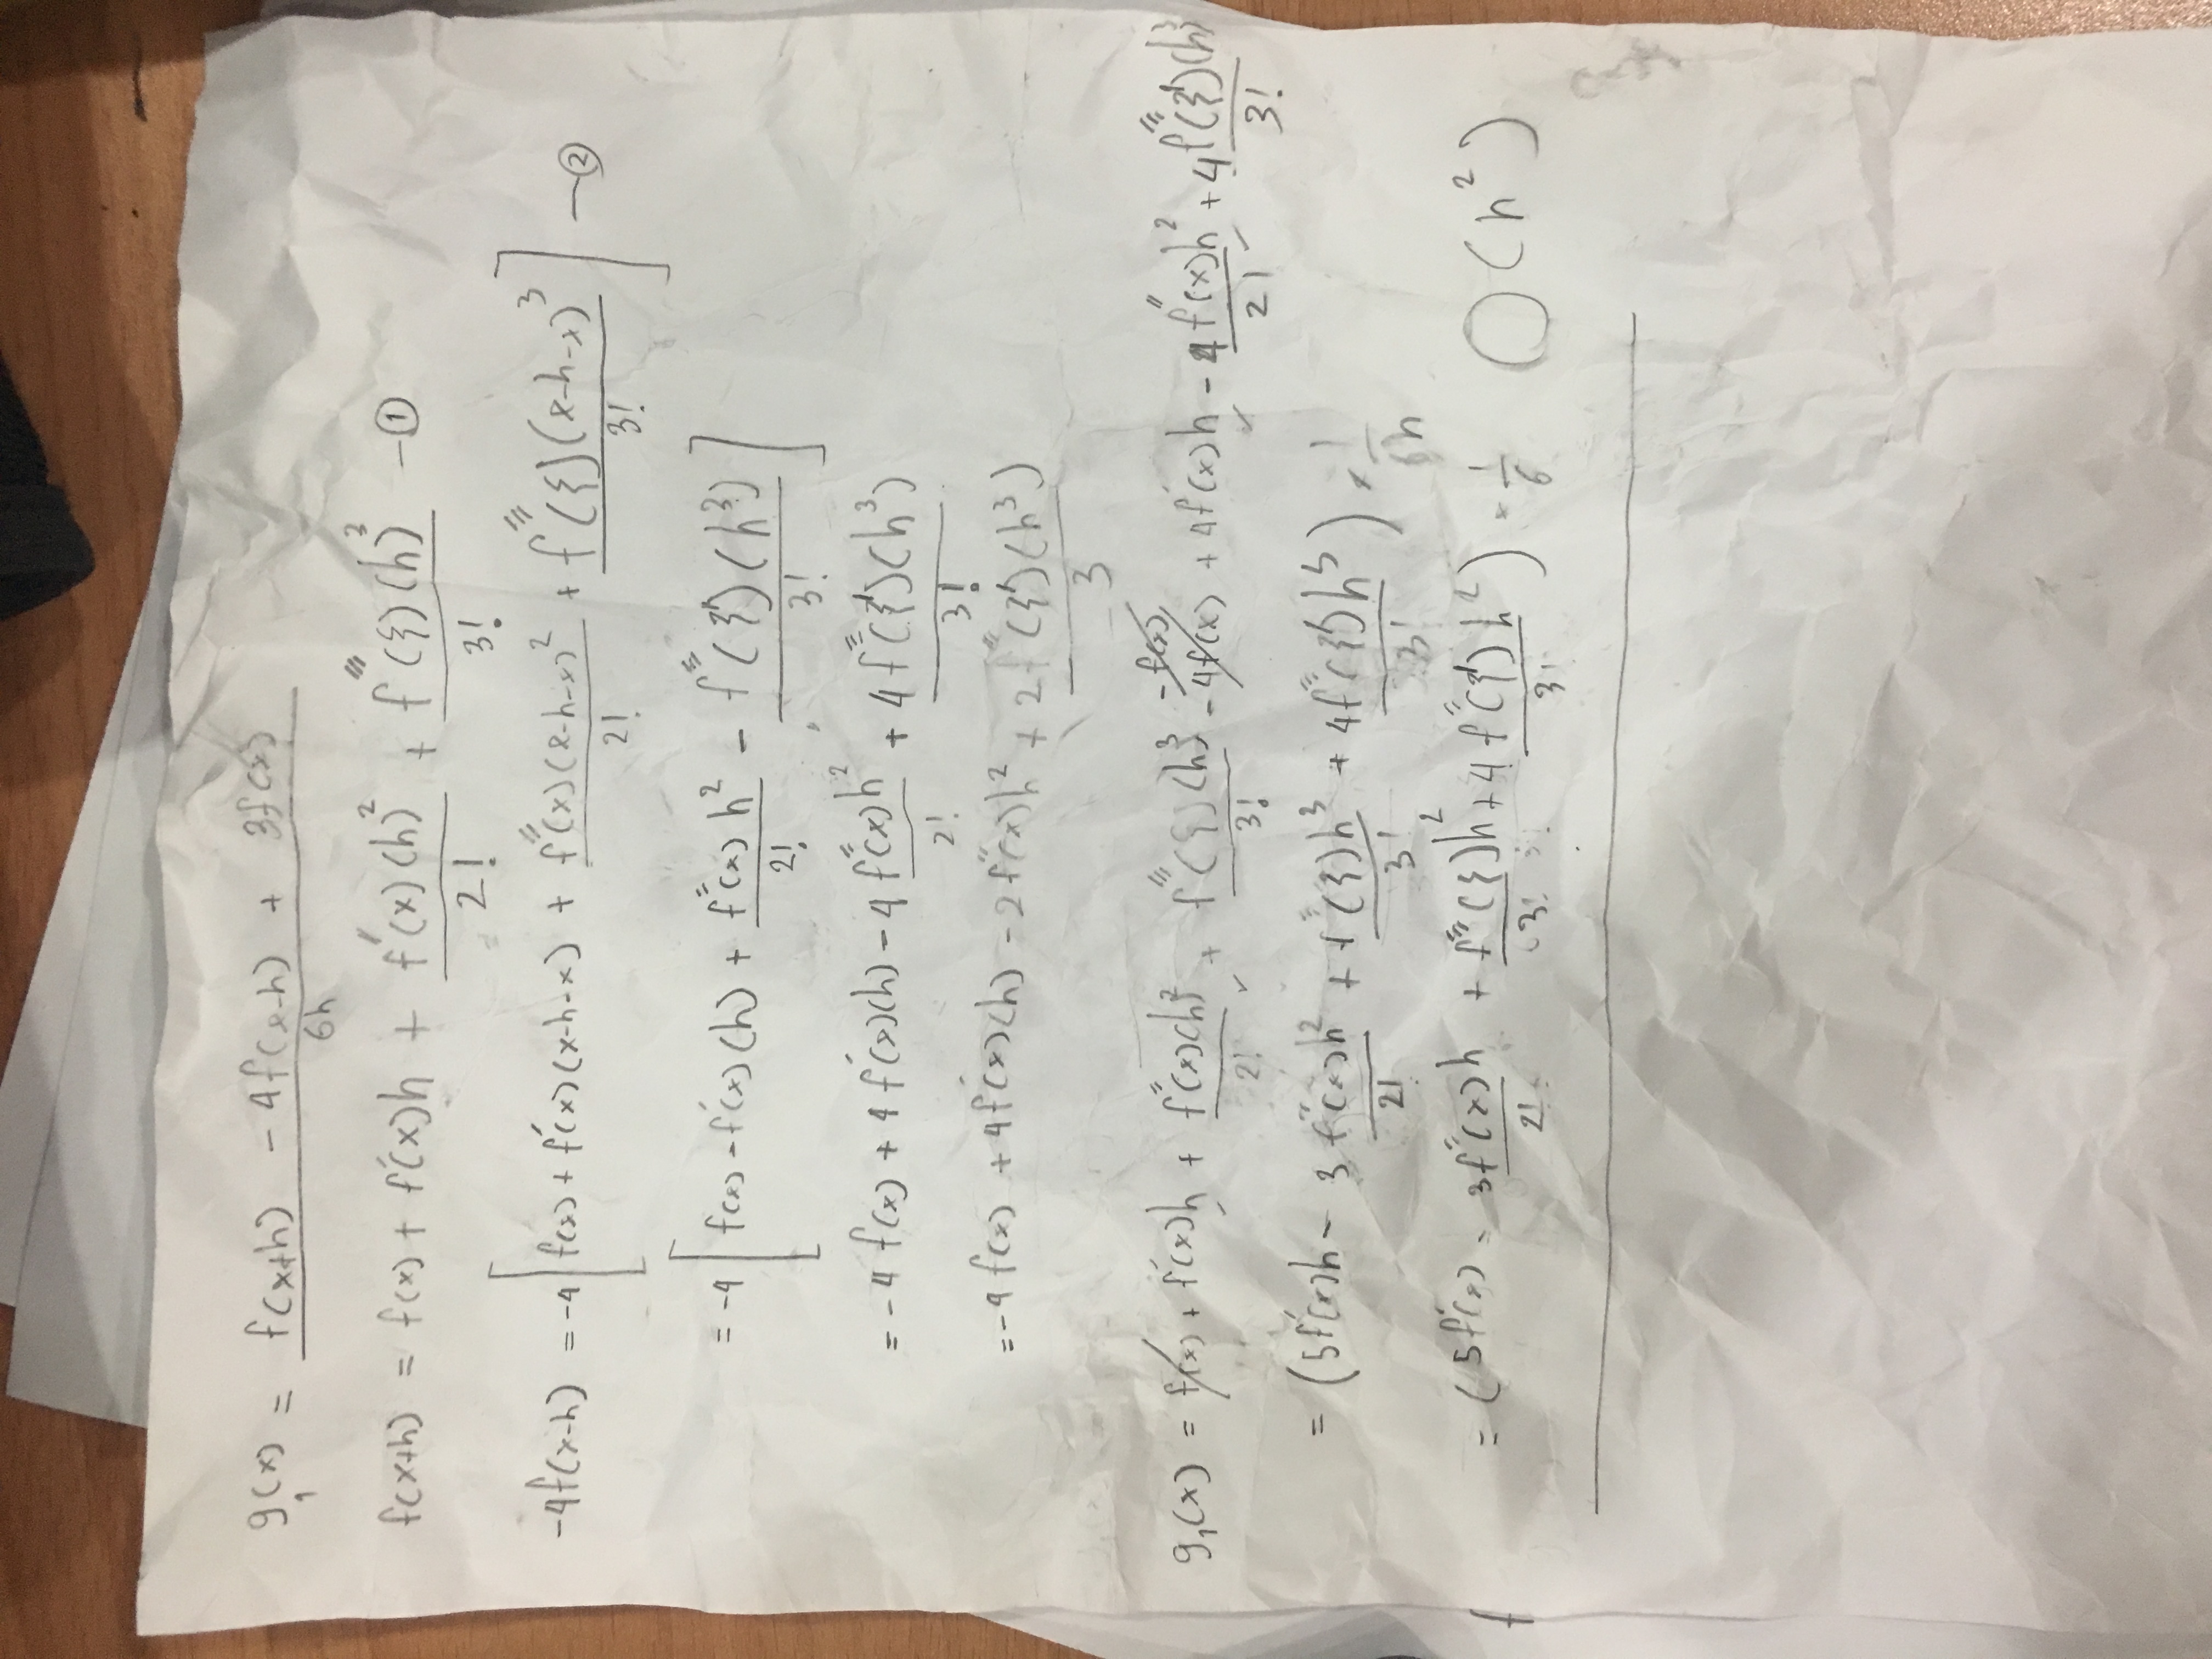 g₁(x) = (f(x+h) - 4f(x-h) + 3f(x)) / 6h
f(x+h) = f(x) + f'(x)h + f''(x)(h)²/2! + f'''(ξ)(h)³/3! —①
-4f(x-h) = -4[f(x) + f'(x)(x-h-x) + f''(x)(x-h-x)²/2! + f'''(ξ)(x-h-x)³/3!] —②
= -4[f(x) - f'(x)(h) + f''(x)h²/2! - f'''(ξ')(h³)/3!]
= -4f(x) + 4f'(x)(h) - 4f''(x)h²/2! + 4f'''(ξ')(h³)/3!
= -4f(x) + 4f'(x)(h) - 2f''(x)h² + 2f'''(ξ')(h³)/3
-f(x)
g₁(x) = f(x) + f'(x)h + f''(x)(h)²/2! + f'''(ξ)(h)³/3! - 4f(x) + 4f'(x)h - 4f''(x)h²/2! + 4f'''(ξ')(h)³/3!
= (5f'(x)h - 3f''(x)h²/2! + f'''(ξ)h³/3! + 4f'''(ξ')h³/3!) × 1/6h
= (5f'(x) - 3f''(x)h/2! + f'''(ξ)h²/3! + 4f'''(ξ')h²/3!) × 1/6 O(h²)